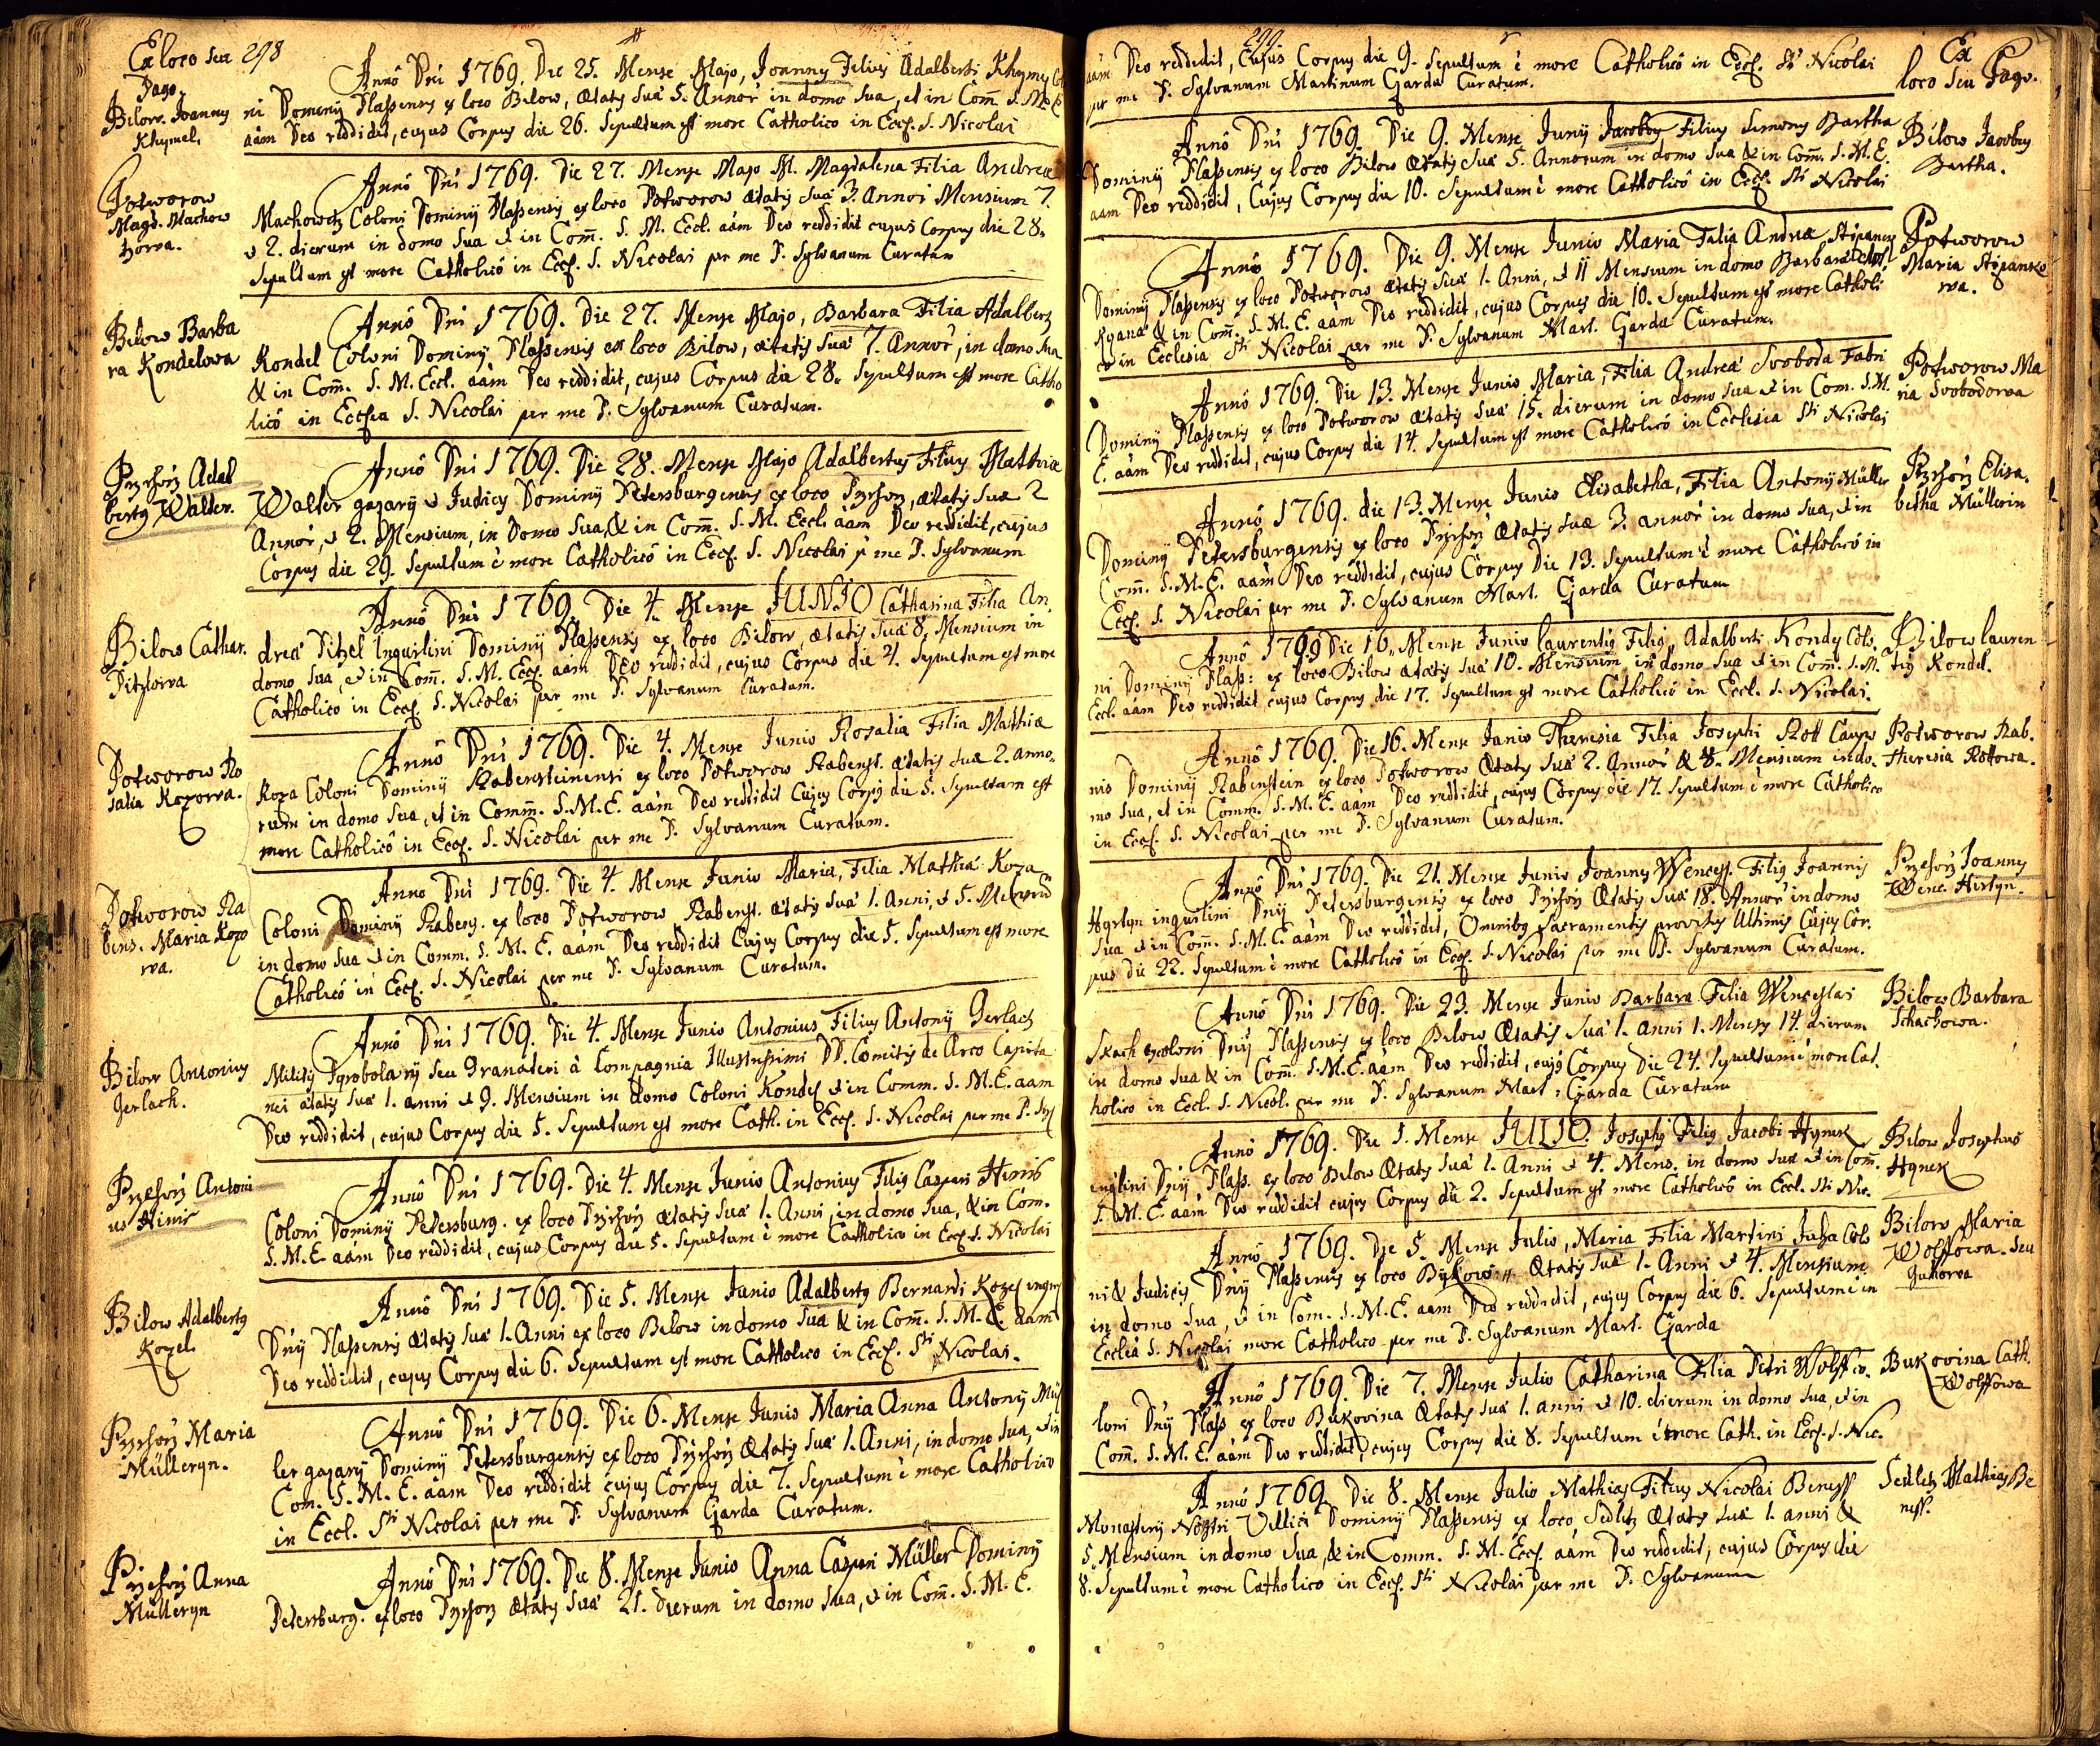 Ex loco seu
Pago.
298
Annô Dni 1769. Die 25. Mense Majo, Joannes Filius Adalberti Khymel Colo
ni Dominij Plassensis ex loco Bilow, ætatis suæ 5. Annor̄ in domo sua, et in Com̄. S. M. E.
aām Deo reddidit, cujus Corpus die 26. Sepultum est more Catholico in Eccl. S. Nicolai
Bilow. Joannes
Khymel.
Annô Dni 1769. Die 27. Mense Majo M. Magdalena Filia Andreæ
Machowetz Coloni Dominij Plassensis ex loco Potworow ætatis suæ 3. Annor̄ Mensium 7.
& 2. dierum in domo sua & in Com̄. S. M. Eccl. aām Deo reddidit cujus Corpus die 28.
Sepultum est more Catholicô in Eccl. S. Nicolai per me P. Sylvanum Curatum
Potworow
Magd. Machow
tzowa.
Annô Dni 1769. Die 27. Mense Majo, Barbara Filia Adalberti
Kondel Coloni Dominij Plassensis ex loco Bilow, ætatis suæ 7. Annor̄, in domo sua
& in Com̄. S. M. Eccl. aām Deo reddidit, cujus Corpus die 28. Sepultum est more Catho
licô in Ecclsia S. Nicolai per me P. Sylvanum Curatum.
Bilow Barba
ra Kondelowa
Annô Dni 1769. Die 28. Mense Majo Adalbertus Filius Mathiæ
Walter gazarij & Judicis Dominij Petersburgensis ex loco Przehorz, ætatis suæ 2
Annor̄, & 2. Mensium, in Domo sua, & in Com̄. S. M. Eccl. aām Deo reddidit, cujus
Corpus die 29. Sepultum ē more Catholicô in Eccl. S. Nicolai p̄ me P. Sylvanum
Przehorz Adal
bertus Walter.
Annô Dni 1769. Die 4. Mense JUNIO Catharina Filia An
dreæ Pitzel Inquilini Dominij Plassensis ex loco Bilow, ætatis suæ 8. Mensium in
domo sua, & in Com̄. S. M. Eccl. aām Deo reddidit, cujus Corpus die 4. Sepultum est more
Catholico in Eccl. S. Nicolai per me P. Sylvanum Curatum.
Bilow Cathar.
Pitzlowa
Annô Dni 1769. Die 4. Mense Junio Rosalia Filia Mathiæ
Koza Coloni Dominij Rabensteinensi ex loco Potworow Rabenst. ætatis suæ 2. anno
rum in domo sua, et in Comm̄. S. M. E. aām Deo reddidit Cujus Corpus die 5. Sepultum est
more Catholicô in Eccl. S. Nicolai per me P. Sylvanum Curatum.
Potworow Ro
salia Kozowa.
Anno Dni 1769. Die 4. Mense Junio Maria, Filia Mathiæ Koza
Coloni Dominij Rabens. ex loco Potworow Rabenst. ætatis suæ 1. Anni, & 5. Mensium
in domo sua & in Comm. S. M. E. aām Deo reddidit Cujus Corpus die 5. Sepultum est more
Catholicô in Eccl. S. Nicolai per me P. Sylvanum Curatum.
Potworow Ra
bens. Maria Kozo
wa.
Annô Dni 1769. Die 4. Mense Junio Antonius Filius Antonij Gerlach
Militis Pyrobolarij seu Granateri à Compagnia Illustrissimi DD. Comitis de Arco Capita
nei ætatis suæ 1. anni & 9. Mensium in domo Coloni Kondel & in Comm. S. M. E. aam
Deo reddidit, cujus Corpus die 5. Sepultum est more Cath. in Eccl. S. Nicolai per me P. Syl
Bilow Antonius
Gerlach.
Annô Dni 1769. Die 4. Mense Junio Antonius Filius Caspari Himr
Coloni Dominij Petersburg. ex loco Przehorz ætatis suæ 1. Anni, in domo sua, & in Com.
S. M. E. aām Deo reddidit, cujus Corpus die 5. Sepultum ē more Catholico in Eccl. S. Nicolai
Przehorz Antoni
us Himr
Annô Dni 1769. Die 5. Mense Junio Adalbertus Bernardi Kozel
Dnij Plassensis ætatis suæ 1. Anni ex loco Bilow in domo sua & in Com̄. S. M. E. aām
Deo reddidit, cujus Corpus die 6. Sepultum est more Catholico in Eccl. Sti Nicolai.
Bilow Adalbertus
Kozel.
Annô Dni 1769. Die 6. Mense Junio Maria Anna Antonij Mül
ler gazarij Dominij Petersburgensis ex loco Przehorz ætatis suæ 1. Anni, in domo sua, & in
Com. S. M. E. aām Deo reddidit cujus Corpus die 7. Sepultum ē more Catholico
in Eccl. Sti Nicolai per me P. Sylvanum Garda Curatum.
Przehorz Maria
Mülleryn.
Annô Dni 1769. Die 8. Mense Junio Anna Caspari Müller Dominij
Petersburg. ex loco Przehorz ætatis suæ 21. dierum in domo sua, & in Com̄. S. M. E.
Przehorz Anna
Mülleryn
299
Ex
loco seu Pago.
aām Deo reddidit, Cujus Corpus die 9. Sepultum ē more Catholicô in Eccl. Sti Nicolai
per me P. Sylvanum Martinum Garda Curatum.
Annô Dni 1769. Die 9. Mense Junij Jacobus Filius Simonis Bartha
Dominij Plassensis ex loco Bilow ætatis suæ 5. Annorum in domo sua & in Com̄. S. M. E.
aam Deo reddidit, Cujus Corpus die 10. Sepultum ē more Catholicô in Eccl. Sti Nicolai
Bilow Jacobus
Bartha.
Annô 1769. Die 9. Mense Junio Maria Filia Andreæ Stipanek
Dominij Plassensis ex loco Potworow ætatis suæ 1. Anni, & 11 Mensium in domo Barbaræ
& in Com̄. S. M. E. aām Deo reddidit, cujus Corpus die 10. Sepultum est more Catholi
co in Ecclesia Sti Nicolai per me P. Sylvanum Mart. Garda Curatum.
Potworow
Maria Stipanko
wa.
Annô 1769. Die 13. Mense Junio Maria, Filia Andreæ Svoboda Fabri
Dominij Plassensis ex loco Potworow ætatis suæ 15. dierum in domo sua & in Com. S. M.
E. aām Deo reddidit, cujus Corpus die 14. Sepultum est more Catholicô in Ecclesia Sti Nicolai
Potworow Ma
ria Svobodowa
Annô 1769. die 13. Mense Junio Elisabetha, Filia Antonij Müller
Dominij Petersburgensis ex loco Przehorz ætatis suæ 3. annor̄ in domo sua, & in
Com̄. S. M. E. aām Deo reddidit, cujus Corpus Die 13. Sepultum ē more Catholicô in
Eccl. S. Nicolai per me P. Sylvanum Mart. Garda Curatum
Przehorz Elisa.
betha Müllerin
Annô 1769 Die 16. Mense Junio Laurentius Filius Adalberti Kondel Colo.
ni Dominij Plass: ex loco Bilow ætatis suæ 10. Mensium in domo sua & in Com̄. S. M.
Eccl. aām Deo reddidit cujus Corpus die 17. Sepultum est more Catholicô in Eccl. S. Nicolai.
Bilow Lauren
tius Kondel.
Annô 1769. Die 16. Mense Junio Theresia Filia Josephi Rott Caupo
nis Dominij Rabenstein ex loco Potworow ætatis suæ 2. Annor̄ & 8. Mensium in do
mo sua, et in Comm. S. M. E. aām Deo reddidit, cujus Corpus die 17. Sepultum ē more Catholico
in Eccl. S. Nicolai per me P. Sylvanum Curatum.
Potworow Rab.
Theresia Rottowa.
Annô Dni 1769. Die 21. Mense Junio Joannes Wences. Filius Joannis
Hyrtyn inquilini Dnij Petersburgensis ex loco Przehorz ætatis suæ 18. Annor̄ in domo
sua & in Com̄. S. M. E. aām Deo reddidit, Omnibus Sacramentis provisus Ultimis Cujus Cor.
pus die 22. Sepultum ē more Catholicô in Eccl. S. Nicolai per me P. Sylvanum Curatum.
Przehorz Joannes
Wenc. Hirtyn.
Annô Dni 1769. Die 23. Mense Junio Barbara Filia Wenceslai
Skach coloni Dnij Plassensis ex loco Bilow ætatis suæ 1. anni 1. Mensis 14. dierum
in domo sua & in Com̄. S. M. E. aām Deo reddidit, cujus Corpus Die 24. Sepultum ē more Cat
holico in Eccl. S. Nicol. per me P. Sylvanum Mart: Garda Curatum
Bilow Barbara
Schachowa.
Annô 1769. Die 1. Mense JULIO. Josephus Filius Jacobi Hynek
inq̄lini Dnij Plass. ex loco Bilow ætatis suæ 1. Anni & 4. Mens. in domo sua & in Com̄.
S. M. E. aām Deo reddidit cujus Corpus die 2. Sepultum est more Catholicô in Eccl. Sti Nic.
Bilow Josephus
Hynek
Annô 1769. Die 5. Mense Julio, Maria Filia Martini Juha Colo
ni & Judicis Dnij Plassensis ex loco Bykow: ætatis suæ 1. Anni & 4. Mensium
in domo sua, & in Com. S. M. E. aam Deo reddidit, cujus Corpus die 6. Sepultum ē in
Ecclīa S. Nicolai more Catholico per me P. Sylvanum Mart. Garda
Bilow Maria
Wolffowa. seu
Juhowa
Annô 1769. Die 7. Mense Julio Catharina Filia Petri Wolff co.
loni Dnij Plass ex loco Bukovina ætatis suæ 1. anni & 10. dierum in domo sua, & in
Com̄. S. M. E. aām Deo reddidit, cujus Corpus die 8. Sepultum ē more Cath. in Eccl. S. Nic.
Bukovina Cath.
Wolffowa
Annô 1769. Die 8. Mense Julio Mathias Filius Nicolai Beness
Monasterij Nostri Villici Dominij Plassensis ex loco Sedletz ætatis suæ 1. anni &
5. Mensium in domo sua, & in Comm. S. M. Eccl. aām Deo reddidit, cujus Corpus die
8. Sepultum ē more Catholico in Eccl. Sti Nicolai per me P. Sylvanum
Sedletz Mathias Be
ness.